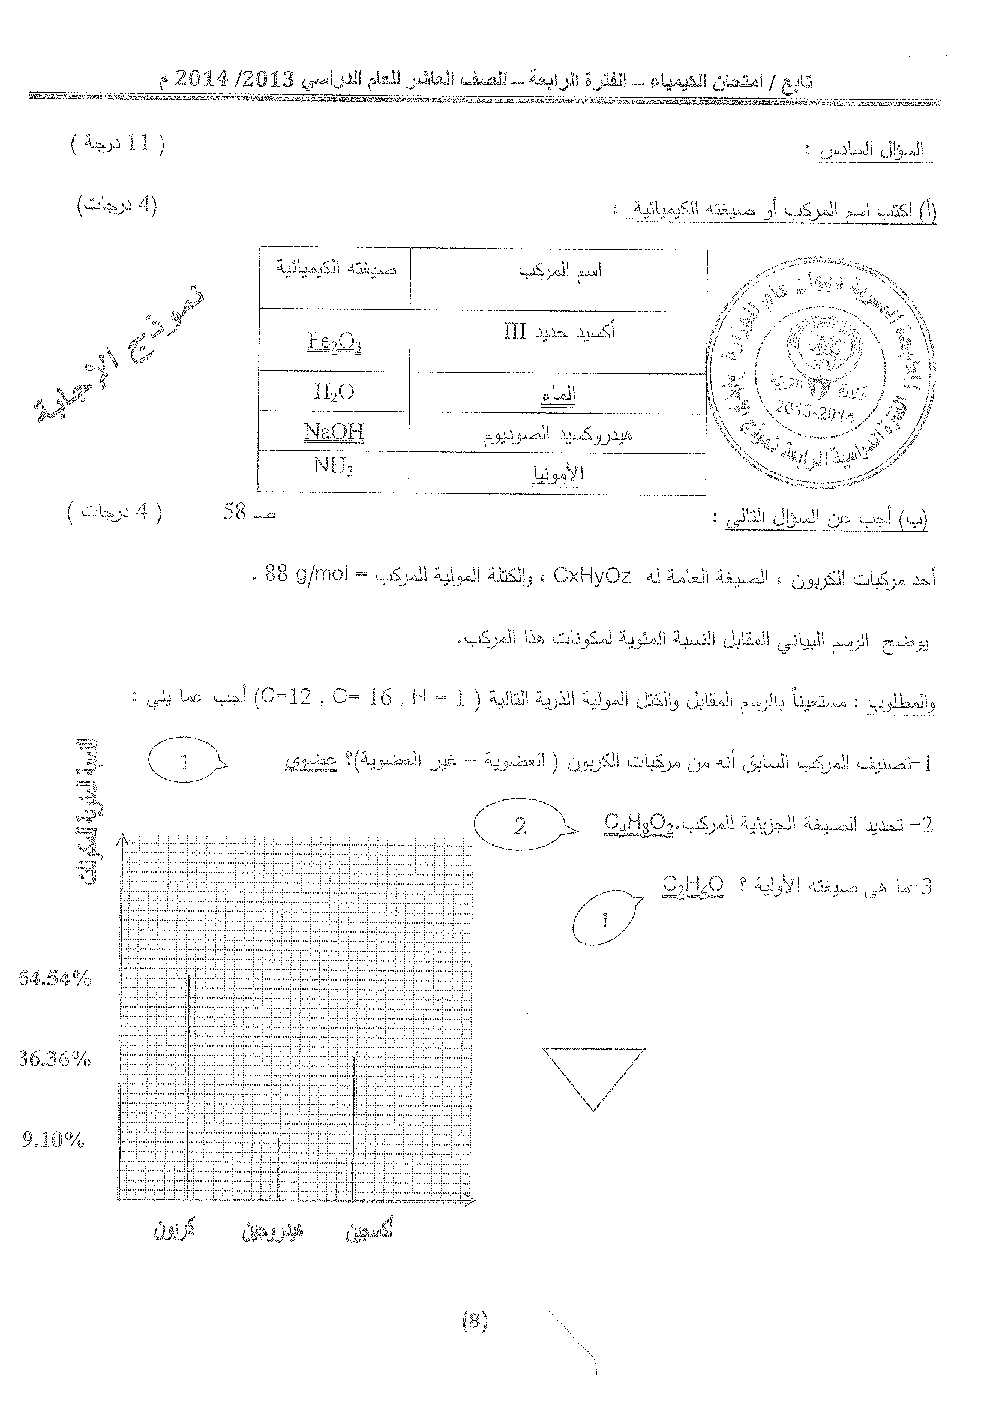 تابع / امتحان الكيمياء – الفترة الرابعة – الصف العاشر للعام الدراسي 2013/ 2014 م
السؤال السادس :
( 11 درجة )
(أ) اكتب اسم المركب أو صيغته الكيميائية :
(4 درجات)
اسم المركب	صيغته الكيميائية
أكسيد حديد III	Fe2O3
الماء	H2O
هيدروكسيد الصوديوم	NaOH
الأمونيا	NH3
نموذج الإجابة
2013-2014
(ب) أجب عن السؤال التالي :
صـ 58
( 4 درجات )
أحد مركبات الكربون ، الصيغة العامة له CxHyOz ، والكتلة المولية للمركب = 88 g/mol .
يوضح الرسم البياني المقابل النسبة المئوية لمكونات هذا المركب.
والمطلوب : مستعيناً بالرسم المقابل والكتل المولية الذرية التالية ( C=12 , O= 16 , H = 1) أجب عما يلي :
1-تصنيف المركب السابق أنه من مركبات الكربون ( العضوية – غير العضوية)؟ عضوي
1
2- تحديد الصيغة الجزيئية للمركب.C4H8O2
2
3-ما هي صيغته الأولية ؟ C2H4O
1
النسبة المئوية للمكونات
54.54%
36.36%
9.10%
كربون
هيدروجين
أكسجين
(8)